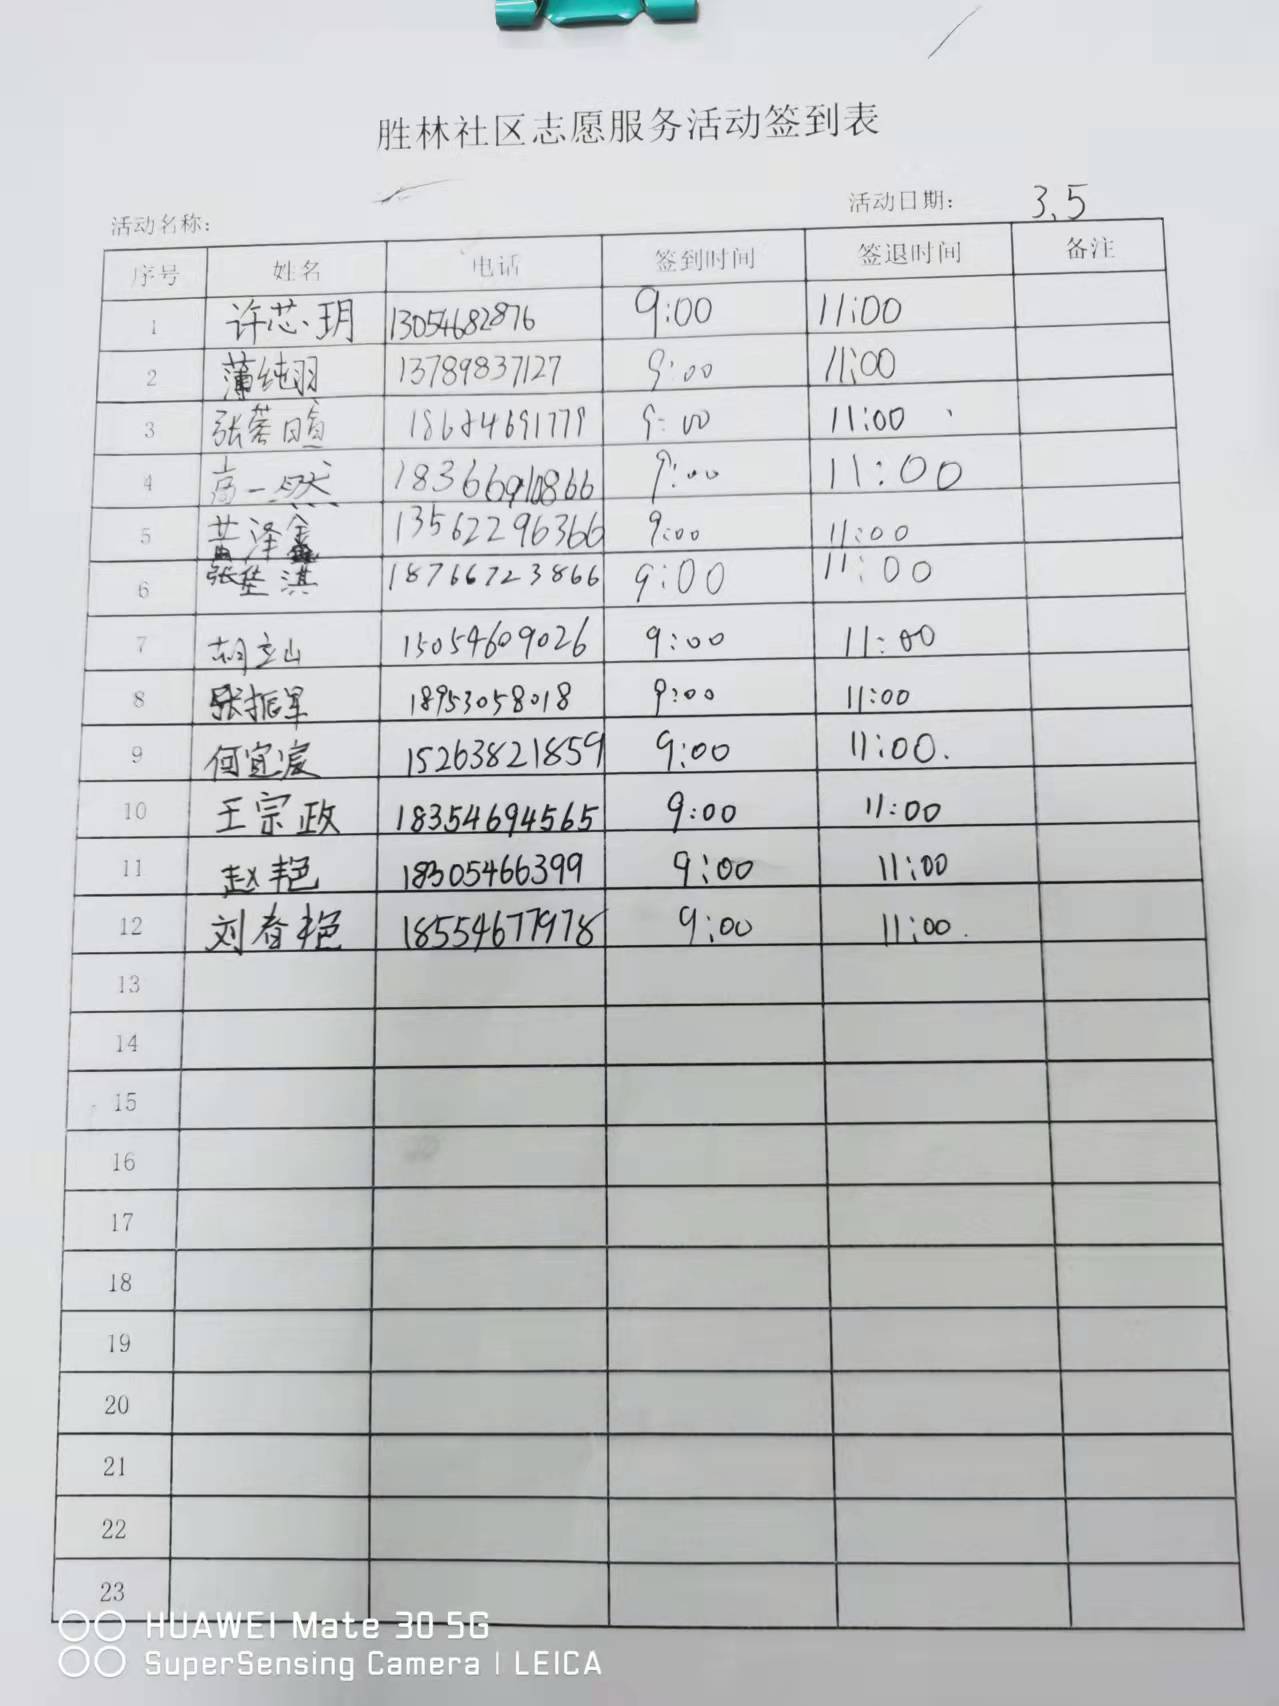 胜林社区志愿服务活动签到表
活动名称: 活动日期: 3.5
序号 姓名 电话 签到时间 签退时间 备注
1 许芯玥 13054682876 9:00 11:00
2 蒲纯羽 13789837127 9:00 11:00
3 张蓉暄 18684691779 9:00 11:00
4 高一然 9:00 11:00
5 黄泽鑫 13562296366 9:00 11:00
6 张垫淇 18766723866 9:00 11:00
7 胡立山 15054609026 9:00 11:00
8 张振军 18953058018 9:00 11:00
9 何宜宸 15263821859 9:00 11:00.
10 王宗政 18354694565 9:00 11:00
11 赵艳 18305466399 9:00 11:00
12 刘春艳 18554677978 9:00 11:00.
13
14
15
16
17
18
19
20
21
22
23
HUAWEI Mate 30 5G
SuperSensing Camera | LEICA